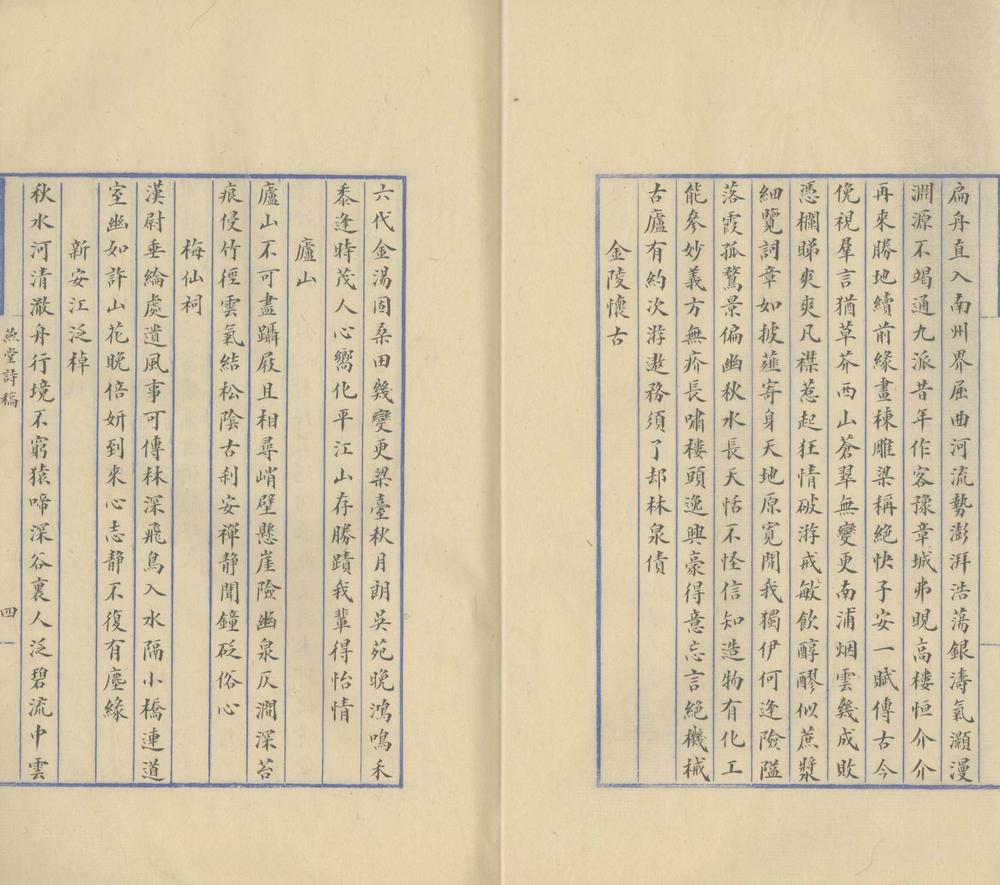 扁舟直入南州界屈曲河流勢澎湃浩蕩銀濤氣灝漫
淵源不竭通九派昔年作客豫章城弗覩高樓恒介介
再來勝地續前緣畫棟雕梁稱絕快子安一賦傳古今
俛視羣言猶草芥西山蒼翠無變更南浦烟雲幾成敗
憑欄睇爽爽凡襟惹起狂情破游戒敏飲醇醪似蔗漿
細覽詞章如披薤寄身天地原寬闊我獨伊何逢險隘
落霞孤鶩景偏幽秋水長天恬不怪信知造物有化工
能參妙義方無疥長嘯樓頭逸興豪得意忘言絕機械
古廬有約次游遨務須了却林泉債
金陵懷古
六代金湯固桑田幾變更梁臺秋月朗吳苑晚鴻鳴禾
黍逢時茂人心嚮化平江山存勝蹟我輩得怡情
廬山
廬山不可盡躡屐且相尋峭壁懸崖險幽泉仄澗深苔
痕侵竹徑雲氣結松陰古刹安禪静聞鐘砭俗心
梅仙祠
漢尉垂綸處遺風事可傳林深飛鳥入水隔小橋連道
室幽如許山花晚倍妍到來心志靜不復有塵緣
新安江泛棹
秋水河清澈舟行境不窮猿啼深谷裏人泛碧流中雲
燕堂詩稿
四